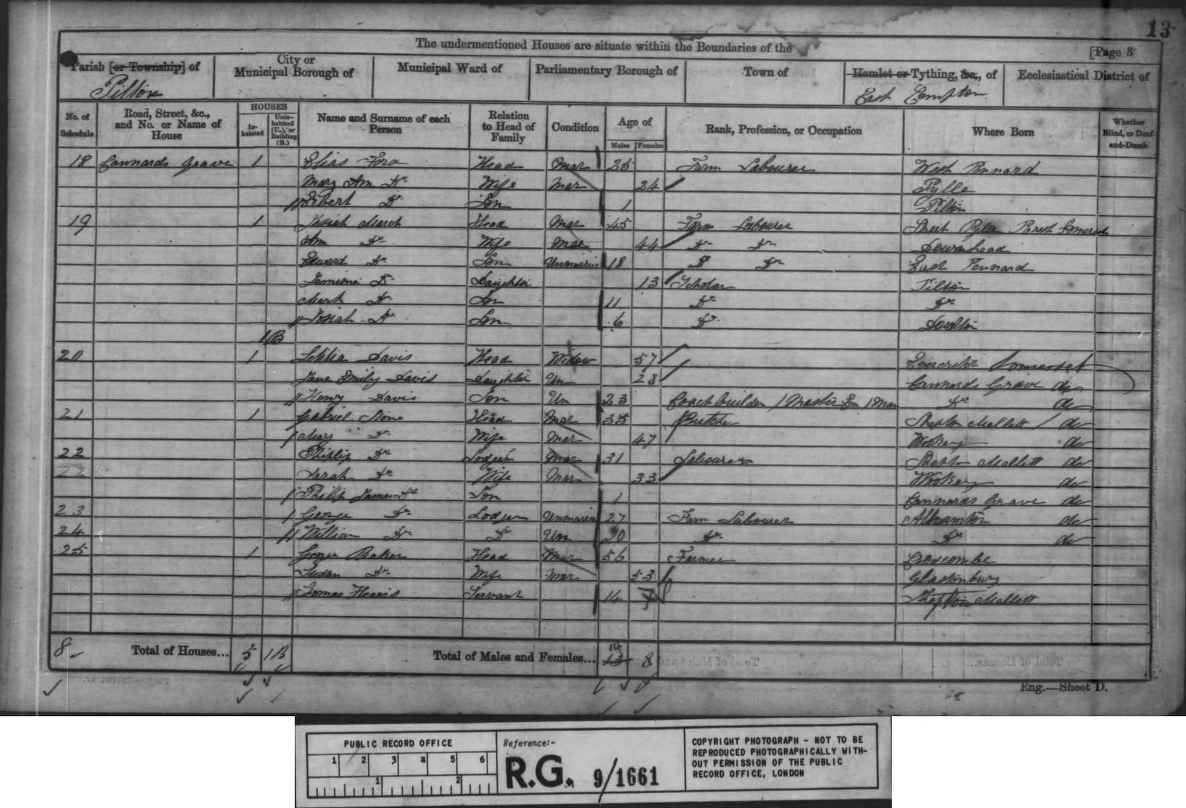 13
The undermentioned Houses are situate within the Boundaries of the
[Page 8
Parish [or Township] of
City or Municipal Borough of
Municipal Ward of
Parliamentary Borough of
Town of
Hamlet or Tything, &c., of
Ecclesiastical District of
Pilton
East Compton
No. of Schedule
Road, Street, &c., and No. or Name of House
HOUSES
Inhabited
Uninhabited (U.), or Building (B.)
Name and Surname of each Person
Relation to Head of Family
Condition
Age of
Males
Females
Rank, Profession, or Occupation
Where Born
Whether Blind, or Deaf-and-Dumb
18 Cannards Grave 1 Elias Head Mar 25 Farm Labourer West Pennard
Mary Ann Do Wife Mar 24 Pylle
Robert Do Son 1 Pilton
19 1 Head Mar 45 Farm Labourer
Ann Do Wife Mar 44 Do Do Downhead
Edward Do Son Unmarried 18 Do Do East Pennard
Do Daughter 13 Scholar Pilton
Mark Do Son 11 Do Do
Josiah Do Son 6 Do
1B
20 1 Davis Head Widow 57 Somerset
Jane Emily Davis Daughter Un 28 Cannards Grave do
Henry Davis Son Un 23 Coach builder / Master 1 Man Do do
21 1 Gabriel Head Mar Butcher Shepton Mallett do
Mary Do Wife Mar 47 Wookey do
22 Philip Do Lodger Mar 31 Labourer Shepton Mallett do
22 Sarah Do Wife Mar 33 Wookey do
Philip James Do Son 1 Cannards Grave do
23 George Do Lodger Unmarried 27 Farm Labourer Alhampton do
24 William Do Do Un 20 Do Do do
25 1 Baker Head Mar 56 Farmer Croscombe
Susan Do Wife Mar 53 Glastonbury
Thomas Harris Servant 14 Shepton Mallett
8
Total of Houses... 5 1B
Total of Males and Females... 14 8
Eng.—Sheet D.
PUBLIC RECORD OFFICE
1 2 3 4 5 6
1 2
Reference:-
R.G. 9/1661
COPYRIGHT PHOTOGRAPH - NOT TO BE
REPRODUCED PHOTOGRAPHICALLY WITH-
OUT PERMISSION OF THE PUBLIC
RECORD OFFICE, LONDON